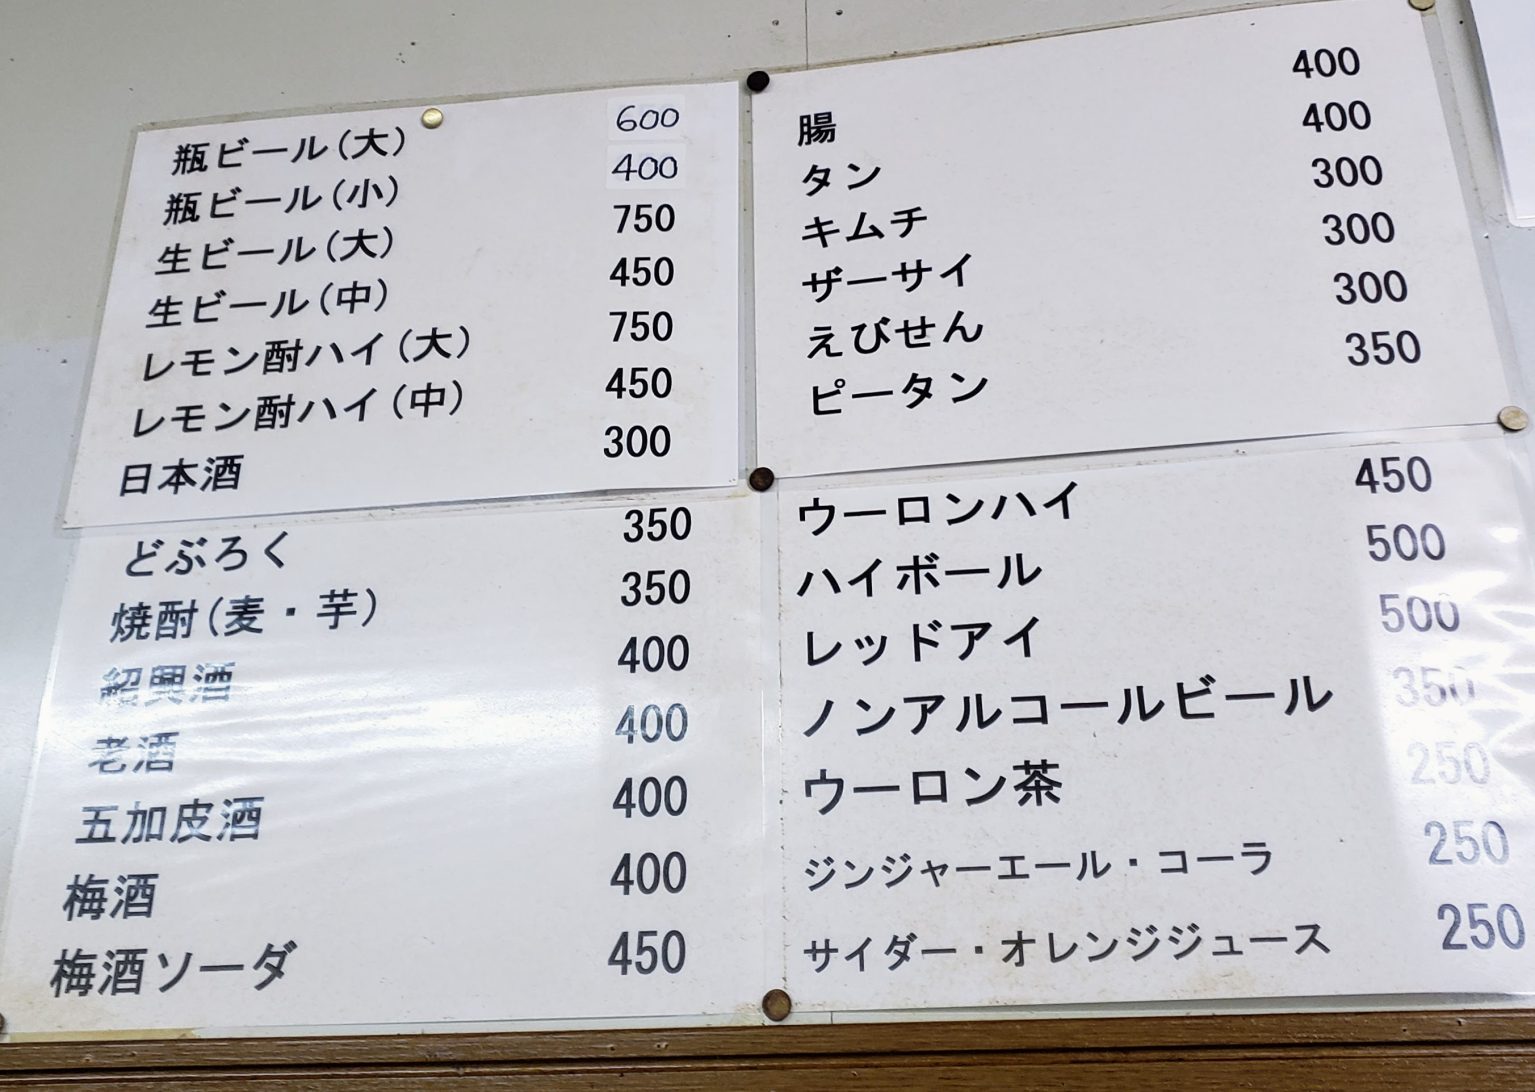 瓶ビール(大) 600
瓶ビール(小) 400
生ビール(大) 750
生ビール(中) 450
レモン酎ハイ(大) 750
レモン酎ハイ(中) 450
日本酒 300
腸 400
タン 400
キムチ 300
ザーサイ 300
えびせん 300
ピータン 350
どぶろく 350
焼酎(麦・芋) 350
紹興酒 400
老酒 400
五加皮酒 400
梅酒 400
梅酒ソーダ 450
ウーロンハイ 450
ハイボール 500
レッドアイ 500
ノンアルコールビール 350
ウーロン茶 250
ジンジャーエール・コーラ 250
サイダー・オレンジジュース 250